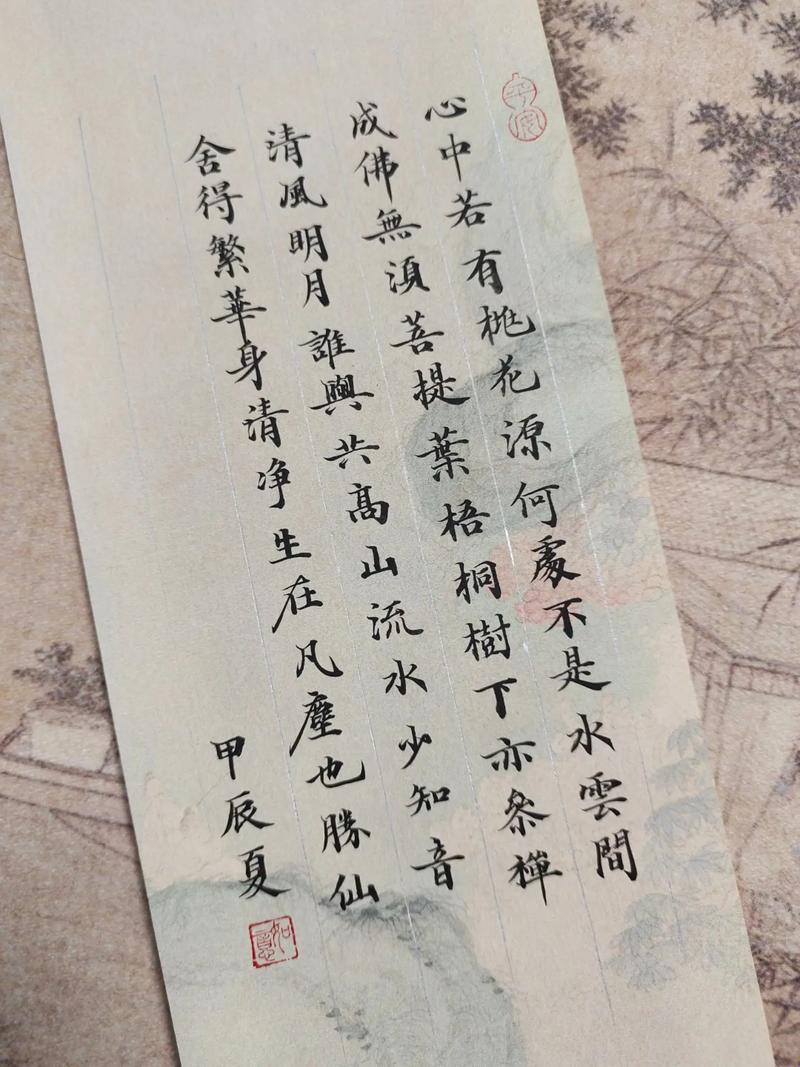 心中若有桃花源何處不是水雲間
成佛無須菩提葉梧桐樹下亦參禪
清風明月誰與共高山流水少知音
舍得繁華身清净生在凡塵也勝仙
甲辰夏
平安
如意